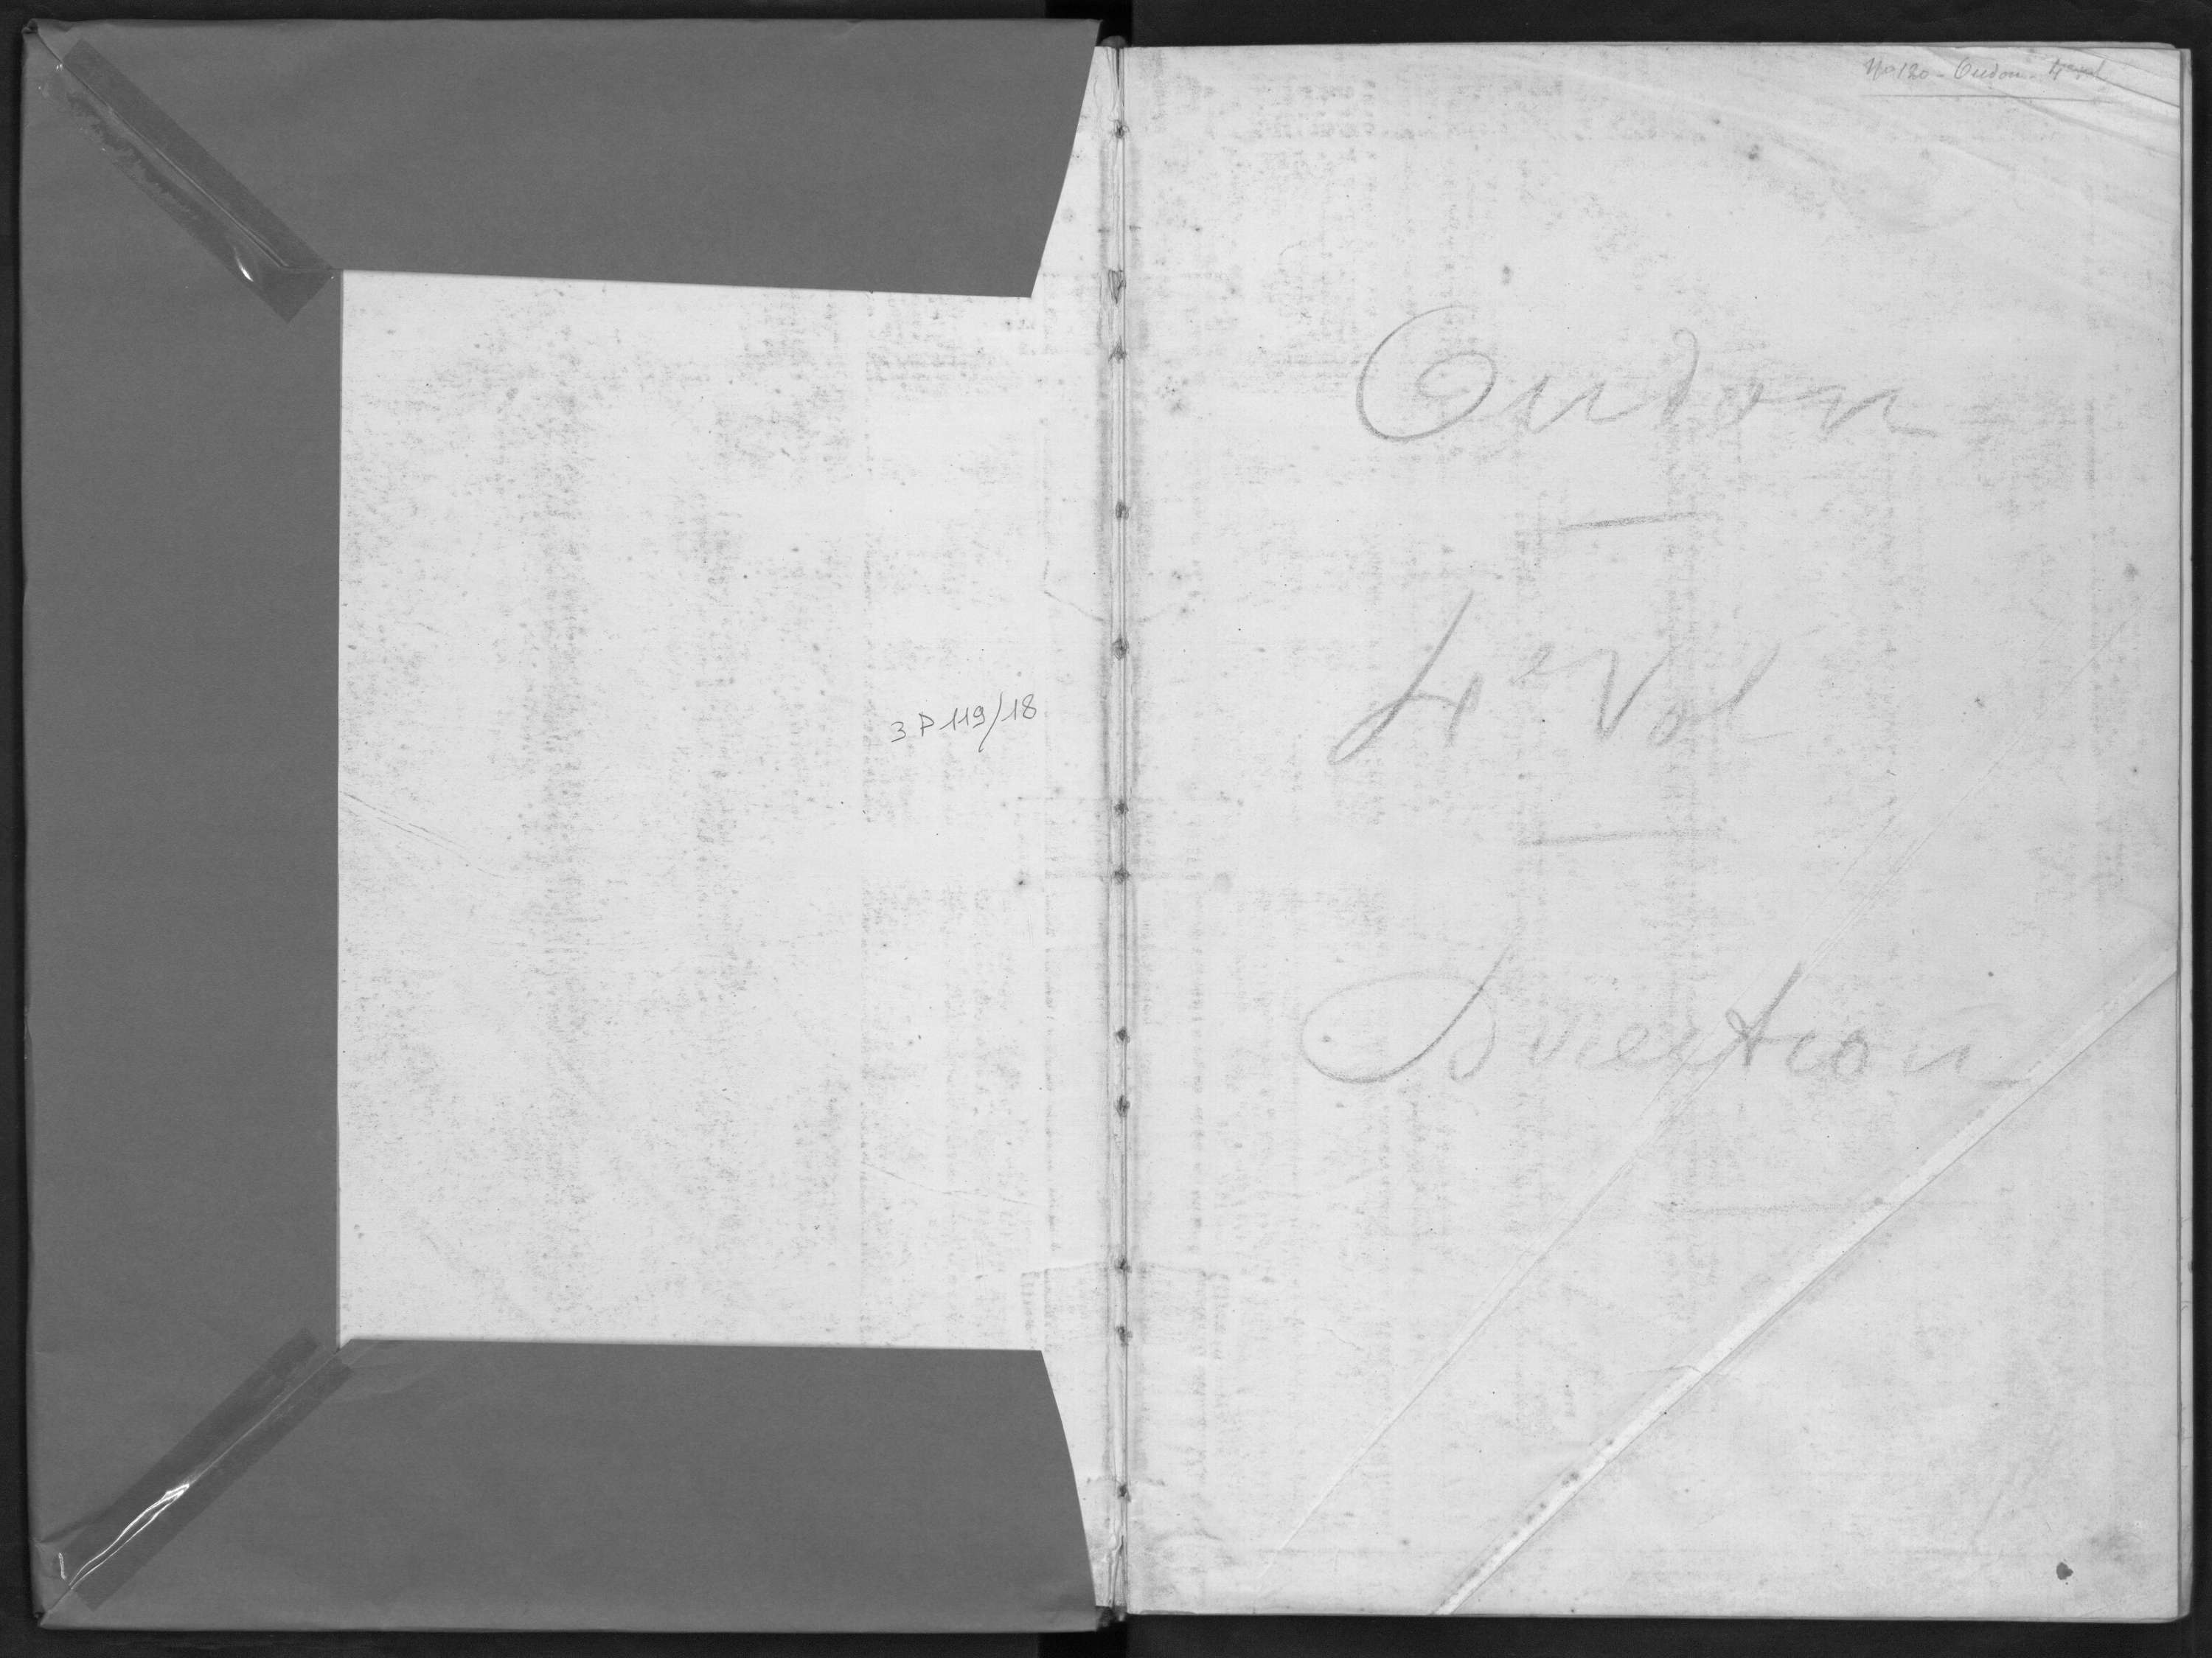 3 P 119/18
No 120 - Oudon - 4e vol
Oudon
4e Vol
Direction